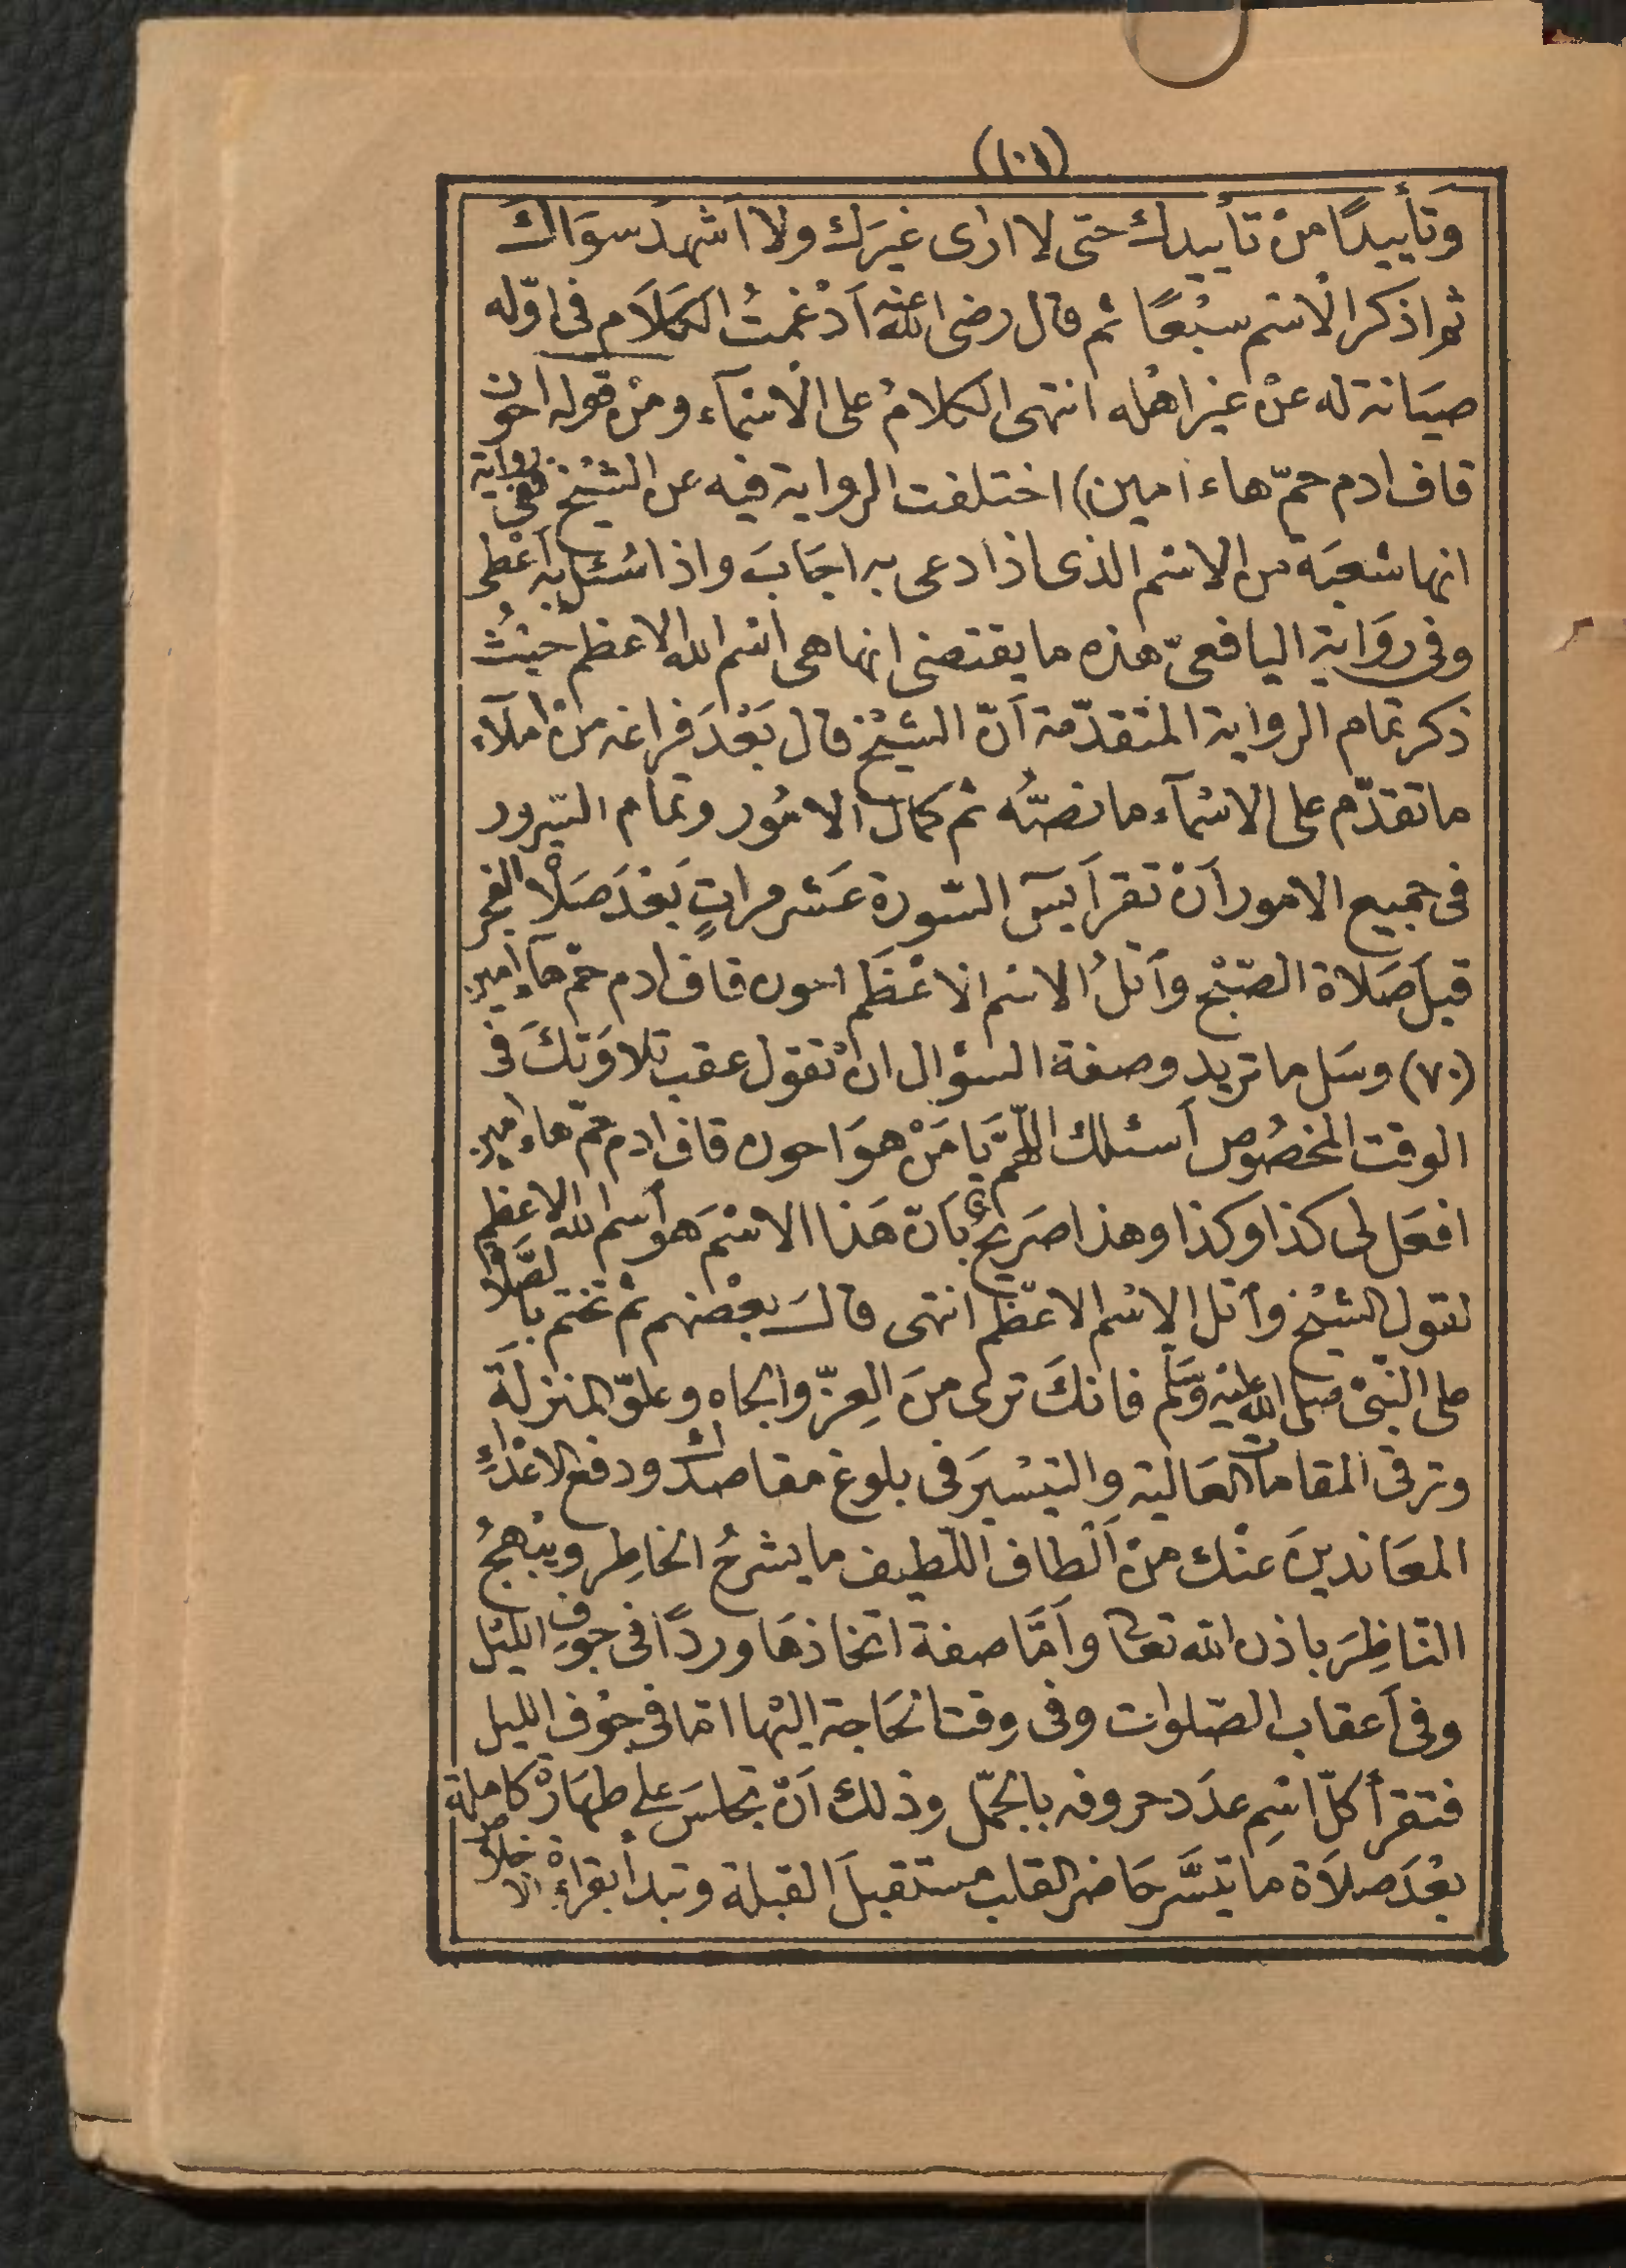 (١٠١)
وَتأييدًا منْ تأييدك حتى لا ارى غيَرك ولا اشهدَ سوَاكَ
ثم اذكر الْاسْم سبْعًا ثم قال رضى الله عنه اَدْغمتُ الكَلَام فى اوّله
صيَانة له عنْ غير اهْله انتهى الكلامُ على الْاسْمآء ومنْ قوله احون
قاف ادم حمّ هاء امين) اختلفت الرواية فيه عن الشيْخ ففى رواية
انها شعبَة من الاسْم الذى اذا دعى به اجَابَ واذا سُئل به اَعْطى
وفى روَاية اليافعىّ هذه ما يقتضى انها هى اسْم الله الاعظم حيْثُ
ذكر تمام الرواية المتقدّمة اَنّ الشيْخ قال بَعْدَ فراغه منْ املآء
ما تقدّم على الاسْمآء ما نصّه ثم كمال الامُور وتمام السّرور
فى جميع الامور اَنْ تقرأ يسَ السّورة عَشر مراتٍ بَعْدَ صَلْاة الفجر
قبل صَلَاة الصّبْح وَاتلُ الاسْم الاعْظَم احون قاف ادم حمّ هآء امين
(٧٠) وسَل ما تريد وصفة السؤال انْ تقول عقب تلاوَتكَ فى
الوقت المخصُوص اَسئلك اللّهمّ يَا مَنْ هوَ احون قاف ادم حمّ هاء امين
افعَل لى كذا وكذا وهذا صَريحٌ بَانّ هَذا الاسْمَ هو اسم الله الاعظم
لقول الشيْخ وَاتل الاسْم الاعْظم انتهى قالَ بعْضهم ثم تختم بالصَّلاة
على النّبىّ صلى الله عليْه وَسَلّم فانكَ ترى منَ العِزّ والجاه وعلوّ المنزلَة
وترقى المقامات العَالية والتيْسيَر فى بلوغ مقاصدك ودفع الاعْدآءِ
المعَاندينَ عنْك منْ اَلْطاف اللّطيف ما يشرحُ الخاطِر ويبْهجُ
النّاظِرَ باذن الله تعَالى وَاَمَّا صفة اتخاذهَا وردًا فى جوْف الليْل
وفى اَعقاب الصّلوات وفى وقت الحَاجة اليْها امّا فى جوْف الليل
فتقرأ كلّ اسْمِ عدَد حروفه بالجمّل وذلك اَنْ تجلسَ على طهَارْة كاملة
بعْدَ صلَاة ما تيَسَّر حَاضر القلب مستقبلَ القبلة وتبدأ بقراءْة الاخلاص